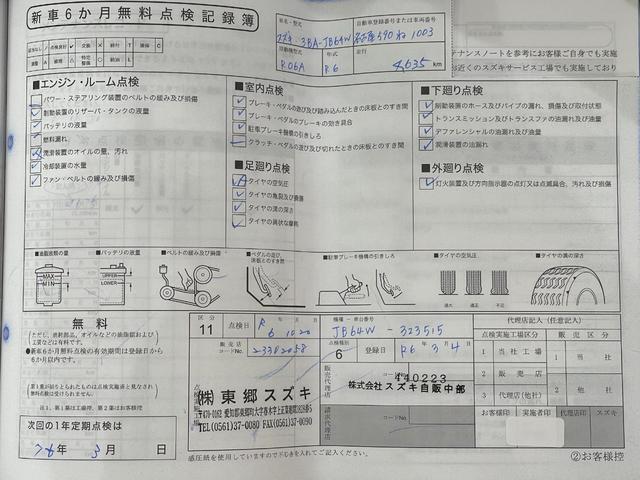 新車6か月無料点検記録簿
車名・型式
スズキ 3BA-JB64W
自動車登録番号または車両番号
名古屋590 ね 1003
原動機型式
R06A
年式
R6
走行
4635 km
ンテナンスノートを参考にお客様ご自身でも実施
お近くのスズキサービス工場でも実施しており
点検良好
交換
給油
調整
清掃
■エンジン・ルーム点検
パワー・ステアリング装置のベルトの緩み及び損傷
制動装置のリザーバ・タンクの液量
バッテリの液量
燃料漏れ
潤滑装置のオイルの量、汚れ
冷却装置の水量
ファン・ベルトの緩み及び損傷
■室内点検
ブレーキ・ペダルの遊び及び踏み込んだときの床板とのすき間
ブレーキ・ペダルのブレーキの効き具合
駐車ブレーキ機構の引きしろ
クラッチ・ペダルの遊び及び切れたときの床板とのすき間
■足廻り点検
タイヤの空気圧
タイヤの亀裂及び損傷
タイヤの溝の深さ
タイヤの異状な摩耗
■下廻り点検
制動装置のホース及びパイプの漏れ、損傷及び取付状態
トランスミッション及びトランスファの油漏れ及び油量
デファレンシャルの油漏れ及び油量
潤滑装置の油漏れ
■外廻り点検
灯火装置及び方向指示器の点灯又は点滅具合、汚れ及び損傷
■油脂液類の量
MAX
MIN
■バッテリの液量
UPPER
LOWER
■ベルトの緩み及び損傷
■ペダルの遊び、床板とのすき間
■駐車ブレーキ機構の引きしろ
■タイヤの空気圧
過大
適正
不足
■タイヤの溝の深さ
無料
(ただし、消耗部品、オイルなどの油脂類および工賃などは有料です。)
●新車6か月無料点検の有効期間は登録日から6か月以内です。
次回の1年定期点検は
年 3月 日
区分
11
点検日
R 6 10 20
機種-車台番号
JB64W - 323515
販売店
コードNo.
点検種別
6
登録日
R6年 3月 4日
(株)東郷スズキ
〒470-0162 愛知郡東郷町大字春木字上正葉廻1828番地5
TEL(0561)37-0080 FAX(0561)37-0090
販売代理店
440223
株式会社スズキ自販中部
請求代理店
コードNo.
代理店記入(任意記入)
点検実施工場区分
販売区分
1 当社工場
1 当社
2 販売店
2 他社
3 代理店(他社)
お客様印
実施者印
代理店印
スズキ
感圧紙を使用していますので下じきを入れてご記入ください。
②お客様控